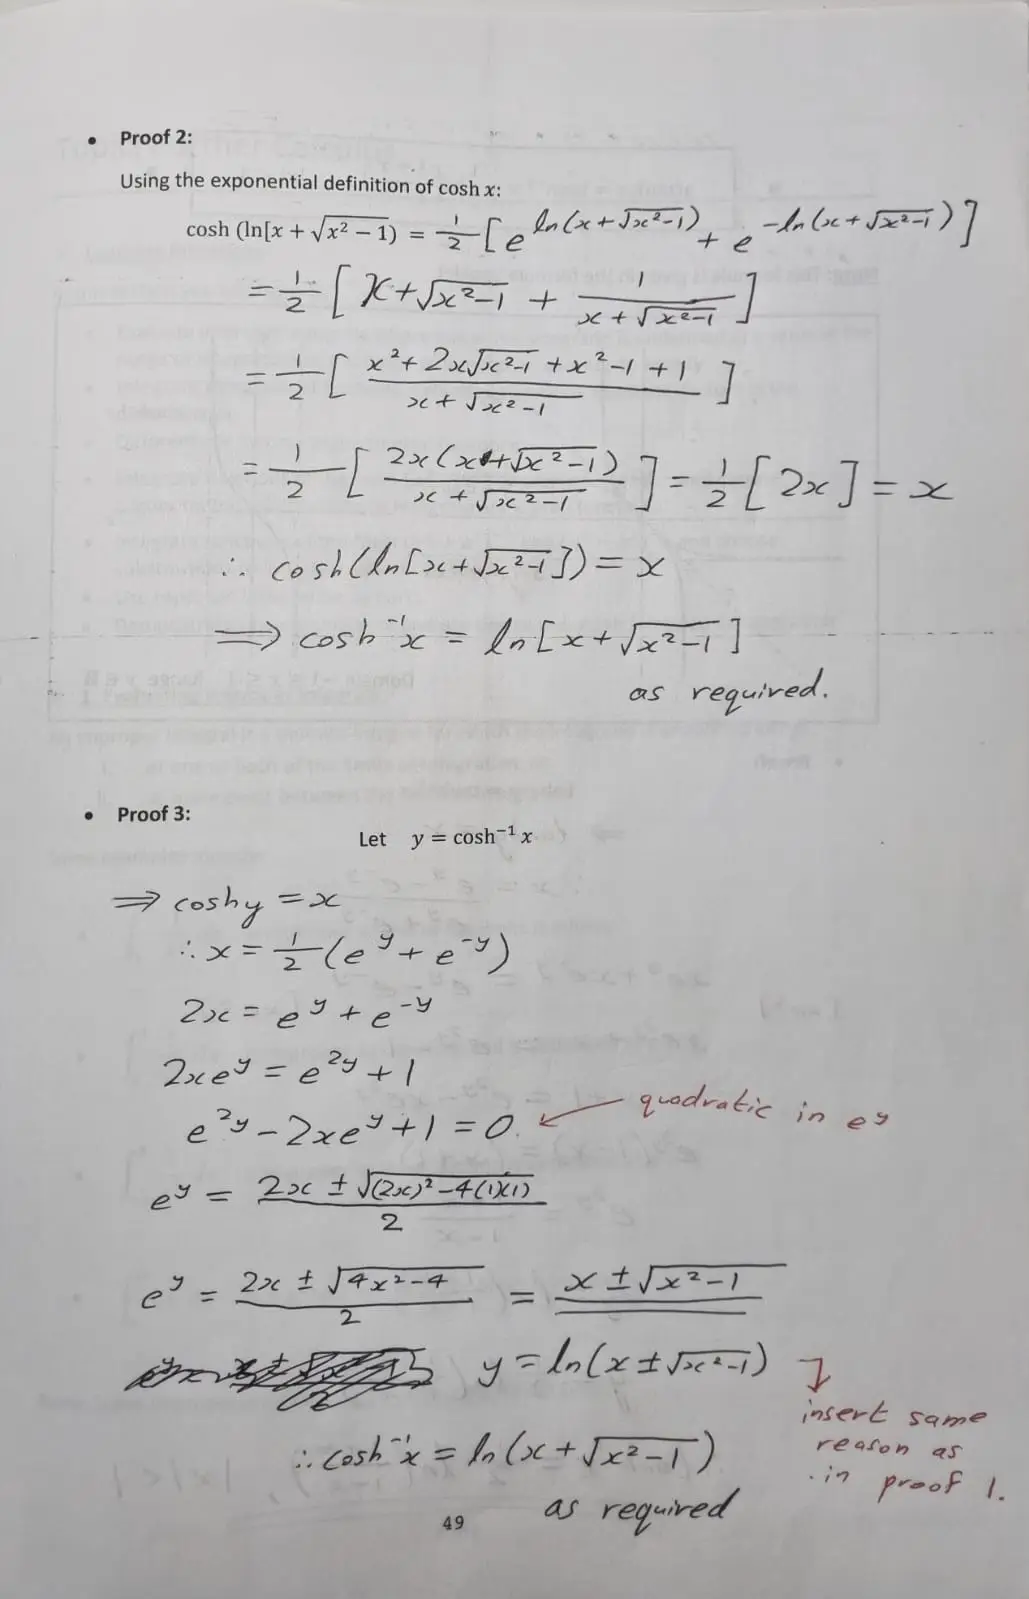 • Proof 2:
Using the exponential definition of cosh x:
cosh (ln[x + √(x² − 1)) = 1/2 [e^(ln(x+√(x²−1))) + e^(−ln(x+√(x²−1)))]
= 1/2 [x+√(x²−1) + 1/(x+√(x²−1))]
= 1/2 [(x²+2x√(x²−1) +x²−1 +1)/(x+√(x²−1))]
= 1/2 [2x(x+√(x²−1))/(x+√(x²−1))] = 1/2 [2x] = x
∴ cosh(ln[x+√(x²−1)]) = x
⟹ cosh⁻¹x = ln[x+√(x²−1)]
as required.
• Proof 3:
Let y = cosh⁻¹ x
⟹ coshy = x
∴ x = 1/2 (e^y + e^(−y))
2x = e^y + e^(−y)
2xe^y = e^(2y) + 1
e^(2y) − 2xe^y + 1 = 0. ← quadratic in e^y
e^y = (2x ± √((2x)² − 4(1)(1)))/2
e^y = (2x ± √(4x²−4))/2 = x ± √(x²−1)
y = ln(x ± √(x²−1))
insert same
reason as
in proof 1.
∴ cosh⁻¹x = ln(x+√(x²−1))
as required
49